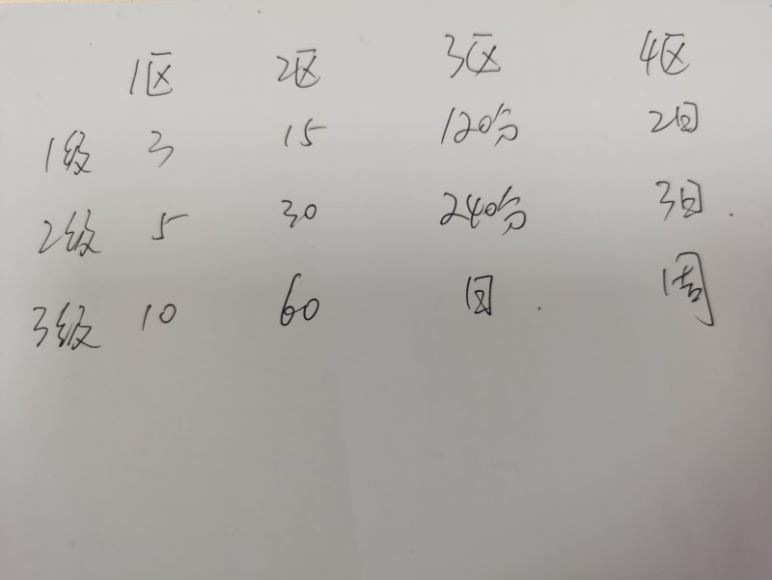 1区 2区 3区 4区
1级 3 15 120分 2日
2级 5 30 240分 3日.
3级 10 60 日. 1周